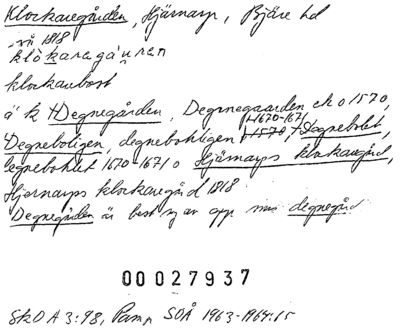 Klockaregården, Hjärnarp, Bjäre hd
1818
klåkaregåuren
klockarbost
ä k †Degnegården, Degnegaarden ck o 1570,
†1670-1671
Degneboligen, degneboligen †1570, †Degnebolet,
degnebohlet 1670-1671 o Hjärnarps klockaregård,
Hjernarps klockaregård 1818
Degnegården är best av app degnegård
00027937
SkO A3:98, SOÅ 1963-1964:15